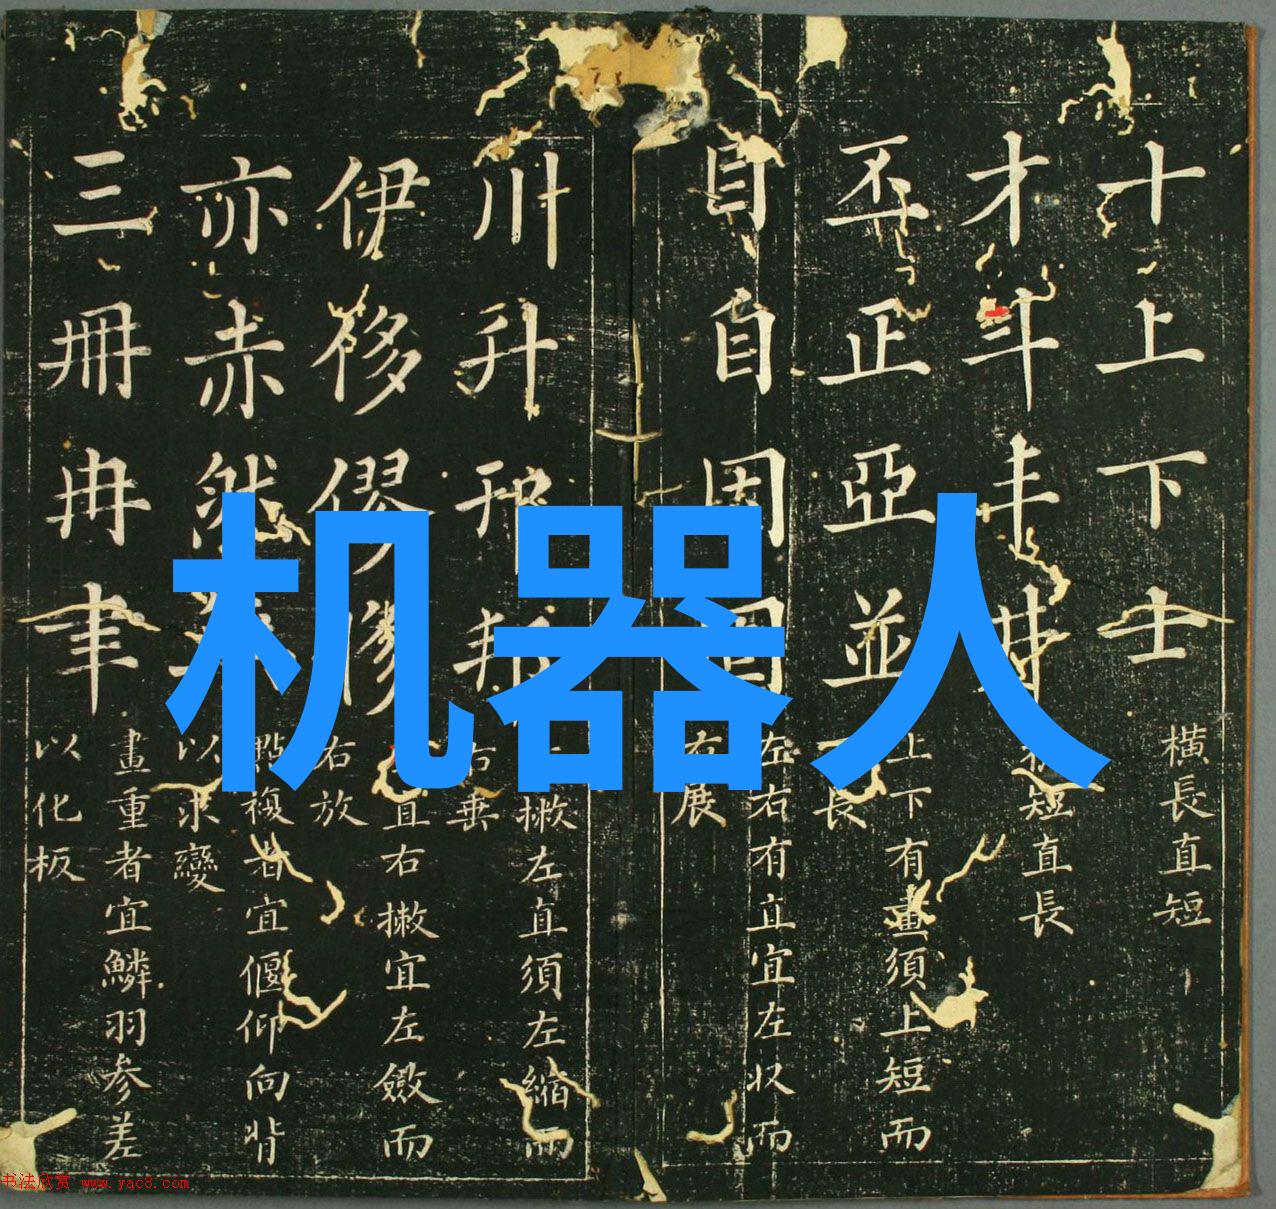 机器人
十上下士
橫長直短
才斗丰
短直長
丕正亞並
上下有畫須上短而
長
目自因
左右有直宜左收而
右展
川升
撇左直須左縮而
右垂
伊侈僇修
直右撇宜左斂而
右放
亦赤然
點複者宜偃仰向背
以求變
三冊冉聿
畫重者宜鱗羽參差
以化板
书法欣赏 www.yac8.com